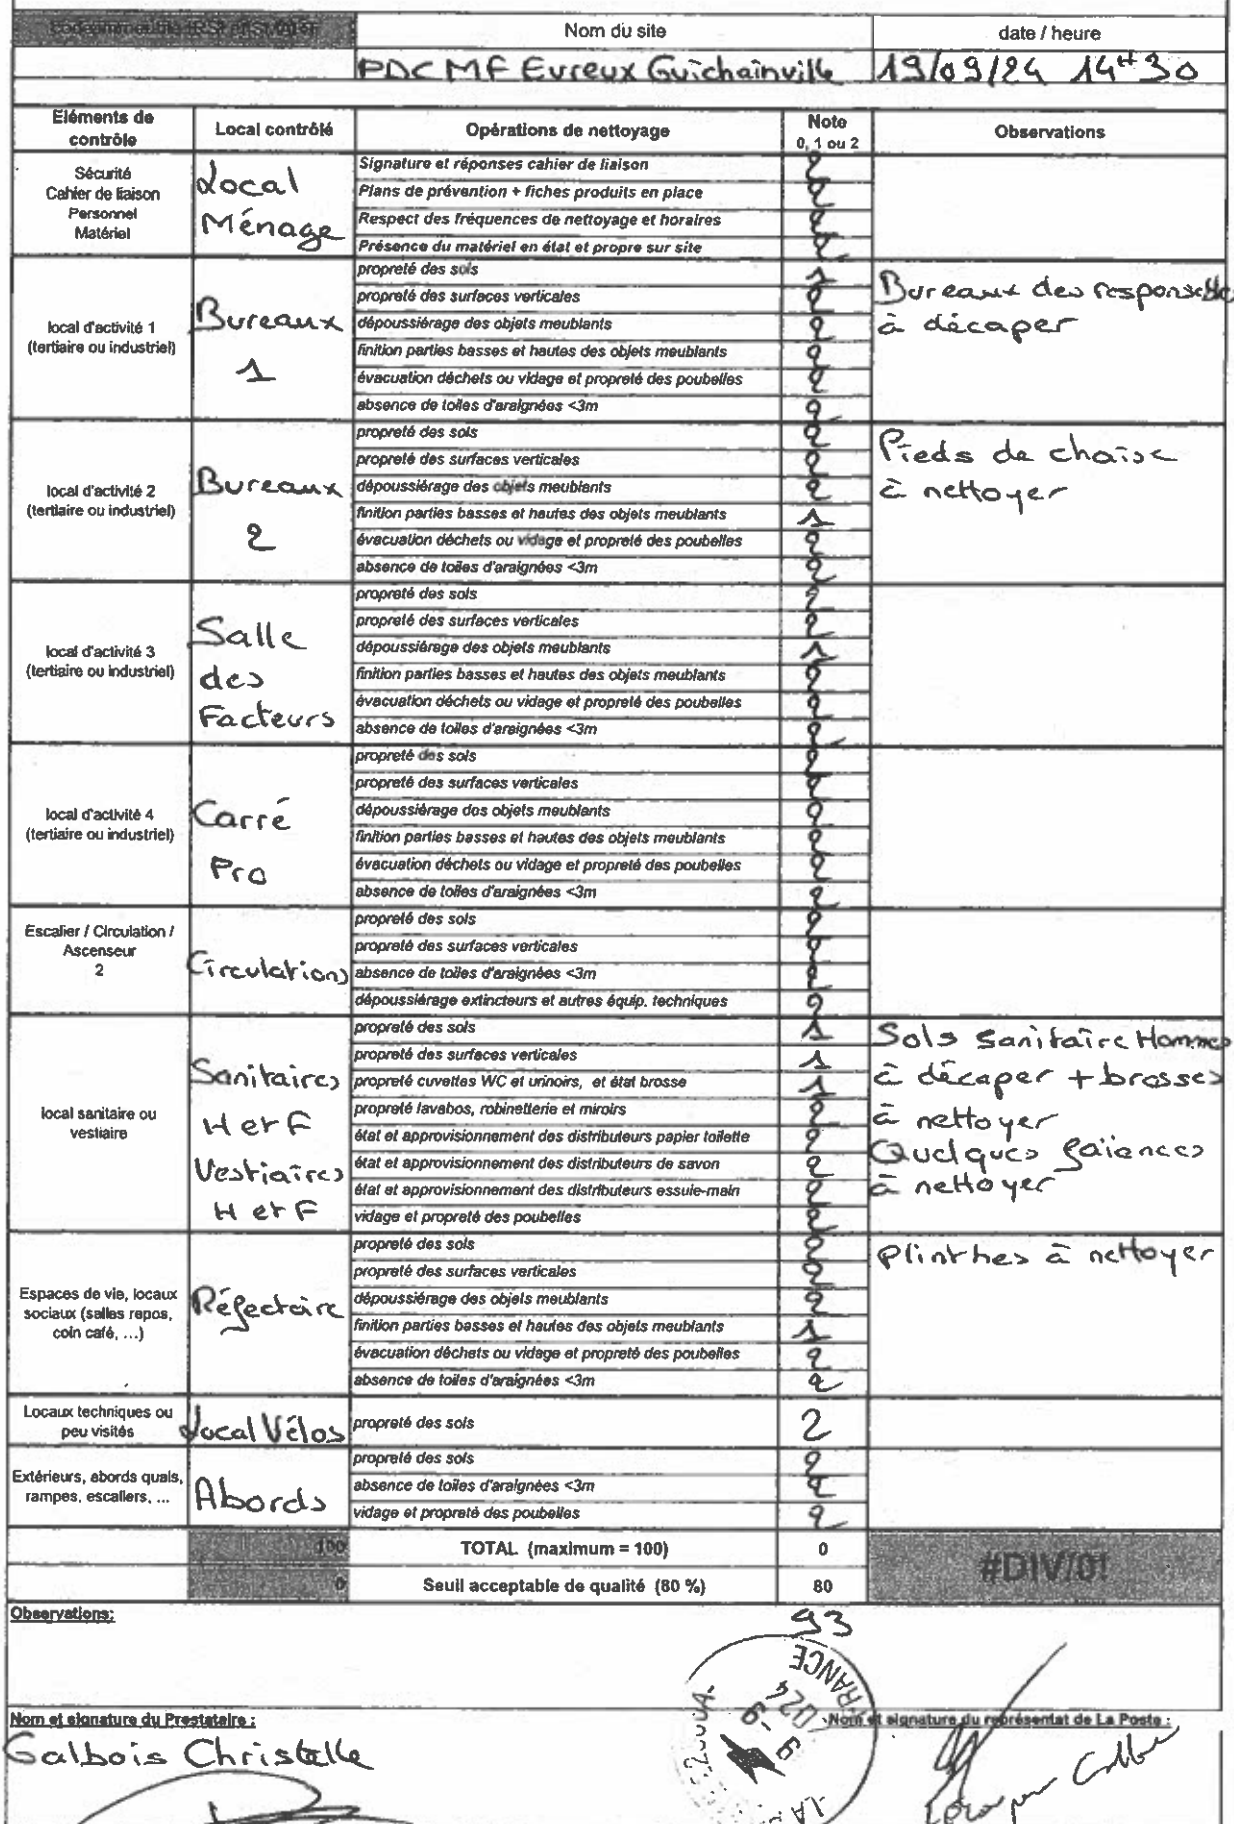 Nom du site
date / heure
PDC MF Evreux Guichainville
19/09/24 14H30
Eléments de contrôle
Local contrôlé
Opérations de nettoyage
Note
0, 1 ou 2
Observations
Sécurité
Cahier de liaison
Personnel
Matériel
Local
Ménage
Signature et réponses cahier de liaison 2
Plans de prévention + fiches produits en place 2
Respect des fréquences de nettoyage et horaires 2
Présence du matériel en état et propre sur site 2
local d'activité 1
(tertiaire ou industriel)
Bureaux
1
propreté des sols 1
propreté des surfaces verticales 2
dépoussiérage des objets meublants 2
finition parties basses et hautes des objets meublants 2
évacuation déchets ou vidage et propreté des poubelles 2
absence de toiles d'araignées <3m 2
Bureaux des responsables
à décaper
local d'activité 2
(tertiaire ou industriel)
Bureaux
2
propreté des sols 2
propreté des surfaces verticales 2
dépoussiérage des objets meublants 2
finition parties basses et hautes des objets meublants 1
évacuation déchets ou vidage et propreté des poubelles 2
absence de toiles d'araignées <3m 2
Pieds de chaise
à nettoyer
local d'activité 3
(tertiaire ou industriel)
Salle
des
Facteurs
propreté des sols 2
propreté des surfaces verticales 2
dépoussiérage des objets meublants 1
finition parties basses et hautes des objets meublants 2
évacuation déchets ou vidage et propreté des poubelles 2
absence de toiles d'araignées <3m 2
local d'activité 4
(tertiaire ou industriel)
Carré
Pro
propreté des sols 2
propreté des surfaces verticales 2
dépoussiérage des objets meublants 2
finition parties basses et hautes des objets meublants 2
évacuation déchets ou vidage et propreté des poubelles 2
absence de toiles d'araignées <3m 2
Escalier / Circulation /
Ascenseur
2
Circulations
propreté des sols 2
propreté des surfaces verticales 2
absence de toiles d'araignées <3m 2
dépoussiérage extincteurs et autres équip. techniques 2
local sanitaire ou
vestiaire
Sanitaires
H et F
Vestiaires
H et F
propreté des sols 1
propreté des surfaces verticales 1
propreté cuvettes WC et urinoirs, et état brosse 1
propreté lavabos, robinetterie et miroirs 2
état et approvisionnement des distributeurs papier toilette 2
état et approvisionnement des distributeurs de savon 2
état et approvisionnement des distributeurs essuie-main 2
vidage et propreté des poubelles 2
Sols Sanitaire Hommes
à décaper + brosses
à nettoyer
Quelques faïences
à nettoyer
Espaces de vie, locaux
sociaux (salles repos,
coin café, ...)
Réfectoire
propreté des sols 2
propreté des surfaces verticales 2
dépoussiérage des objets meublants 2
finition parties basses et hautes des objets meublants 1
évacuation déchets ou vidage et propreté des poubelles 2
absence de toiles d'araignées <3m 2
Plinthes à nettoyer
Locaux techniques ou
peu visités
Local Vélos
propreté des sols 2
Extérieurs, abords quais,
rampes, escaliers, ...
Abords
propreté des sols 2
absence de toiles d'araignées <3m 2
vidage et propreté des poubelles 2
100 TOTAL (maximum = 100) 0
#DIV/0!
0 Seuil acceptable de qualité (80 %) 80
Observations:
93
FRANCE
Nom et signature du Prestataire :
Nom et signature du représentat de La Poste :
Galbois Christelle